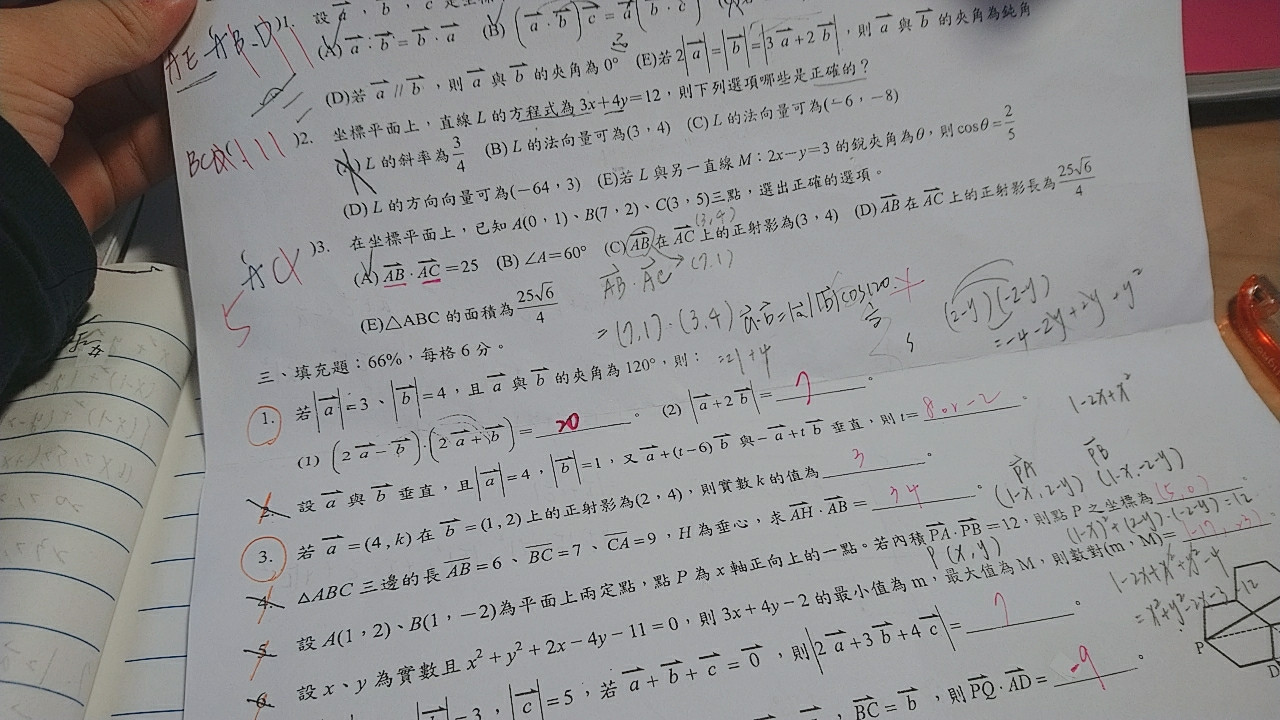 )1. 設 a ， b ， c
(A) a · b = b · a (B) ( a · b ) c = a ( b · c )
(D)若 a // b ，則 a 與 b 的夾角為 0° (E)若 2| a |=| b |=|3 a +2 b |，則 a 與 b 的夾角為鈍角
)2. 坐標平面上，直線 L 的方程式為 3x+4y=12，則下列選項哪些是正確的？
(A) L 的斜率為 3/4 (B) L 的法向量可為(3，4) (C) L 的法向量可為(−6，−8)
(D) L 的方向向量可為(−64，3) (E)若 L 與另一直線 M：2x−y=3 的銳夾角為θ，則 cosθ= 2/5
)3. 在坐標平面上，已知 A(0，1)、B(7，2)、C(3，5)三點，選出正確的選項。
(3,4)
(A) AB · AC =25 (B) ∠A=60° (C) AB 在 AC 上的正射影為(3，4) (D) AB 在 AC 上的正射影長為 25√6/4
(7.1)
AB · AC
(E)△ABC 的面積為 25√6/4
=(7.1)·(3.4)
a·b=|a||b|cos120
(2-y)(-2-y)
=-4-2y+2y+y²
=21+4
三、填充題：66%，每格 6 分。
1. 若| a |=3、| b |=4，且 a 與 b 的夾角為 120°，則：
(1) (2 a − b )·(2 a + b )= 20 。 (2) | a +2 b |= 7 。
2. 設 a 與 b 垂直，且| a |=4，| b |=1，又 a +(t−6) b 與− a +t b 垂直，則 t= 8 or -2 。
1-2x+x²
3. 若 a =(4，k)在 b =(1，2)上的正射影為(2，4)，則實數 k 的值為 3 。
PA PB
(1-x,2-y) (1-x,-2-y)
4. △ABC 三邊的長 AB =6、 BC =7、 CA =9，H 為垂心，求 AH · AB = 34 。
5. 設 A(1，2)、B(1，−2)為平面上兩定點，點 P 為 x 軸正向上的一點。若內積 PA · PB =12，則點 P 之坐標為 (5,0)
P(x,y)
(1-x)²+(2-y)·(-2-y)=12
6. 設 x、y 為實數且 x²+y²+2x−4y−11=0，則 3x+4y−2 的最小值為 m，最大值為 M，則數對(m，M)=
1-2x+x²+y²-4
=x²+y²-2x-3
12
| b |=3，| c |=5，若 a + b + c = 0 ，則|2 a +3 b +4 c |= 7 。
BC = b ，則 PQ · AD = -9 。
P
D